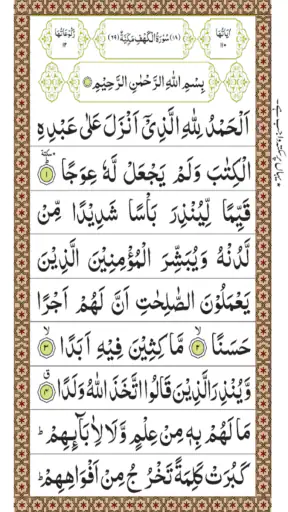 اٰیَاتُهَا ١١٠
(١٨) سُوْرَةُ الْكَهْفِ مَكِّيَّةٌ (٦٩)
رُكُوْعَاتُهَا ١٢
بِسْمِ اللهِ الرَّحْمٰنِ الرَّحِيْمِ
اَلْحَمْدُ لِلّٰهِ الَّذِیْۤ اَنْزَلَ عَلٰی عَبْدِهِ
الْكِتٰبَ وَلَمْ یَجْعَلْ لَّهٗ عِوَجًا ١
قَیِّمًا لِّیُنْذِرَ بَاْسًا شَدِیْدًا مِّنْ
لَّدُنْهُ وَیُبَشِّرَ الْمُؤْمِنِیْنَ الَّذِیْنَ
یَعْمَلُوْنَ الصّٰلِحٰتِ اَنَّ لَهُمْ اَجْرًا
حَسَنًا ٢ مَّاكِثِیْنَ فِیْهِ اَبَدًا ٣
وَّیُنْذِرَ الَّذِیْنَ قَالُوا اتَّخَذَ اللهُ وَلَدًا ٤
مَا لَهُمْ بِهٖ مِنْ عِلْمٍ وَّلَا لِاٰبَآىِٕهِمْ ؕ
كَبُرَتْ كَلِمَةً تَخْرُجُ مِنْ اَفْوَاهِهِمْ ؕ